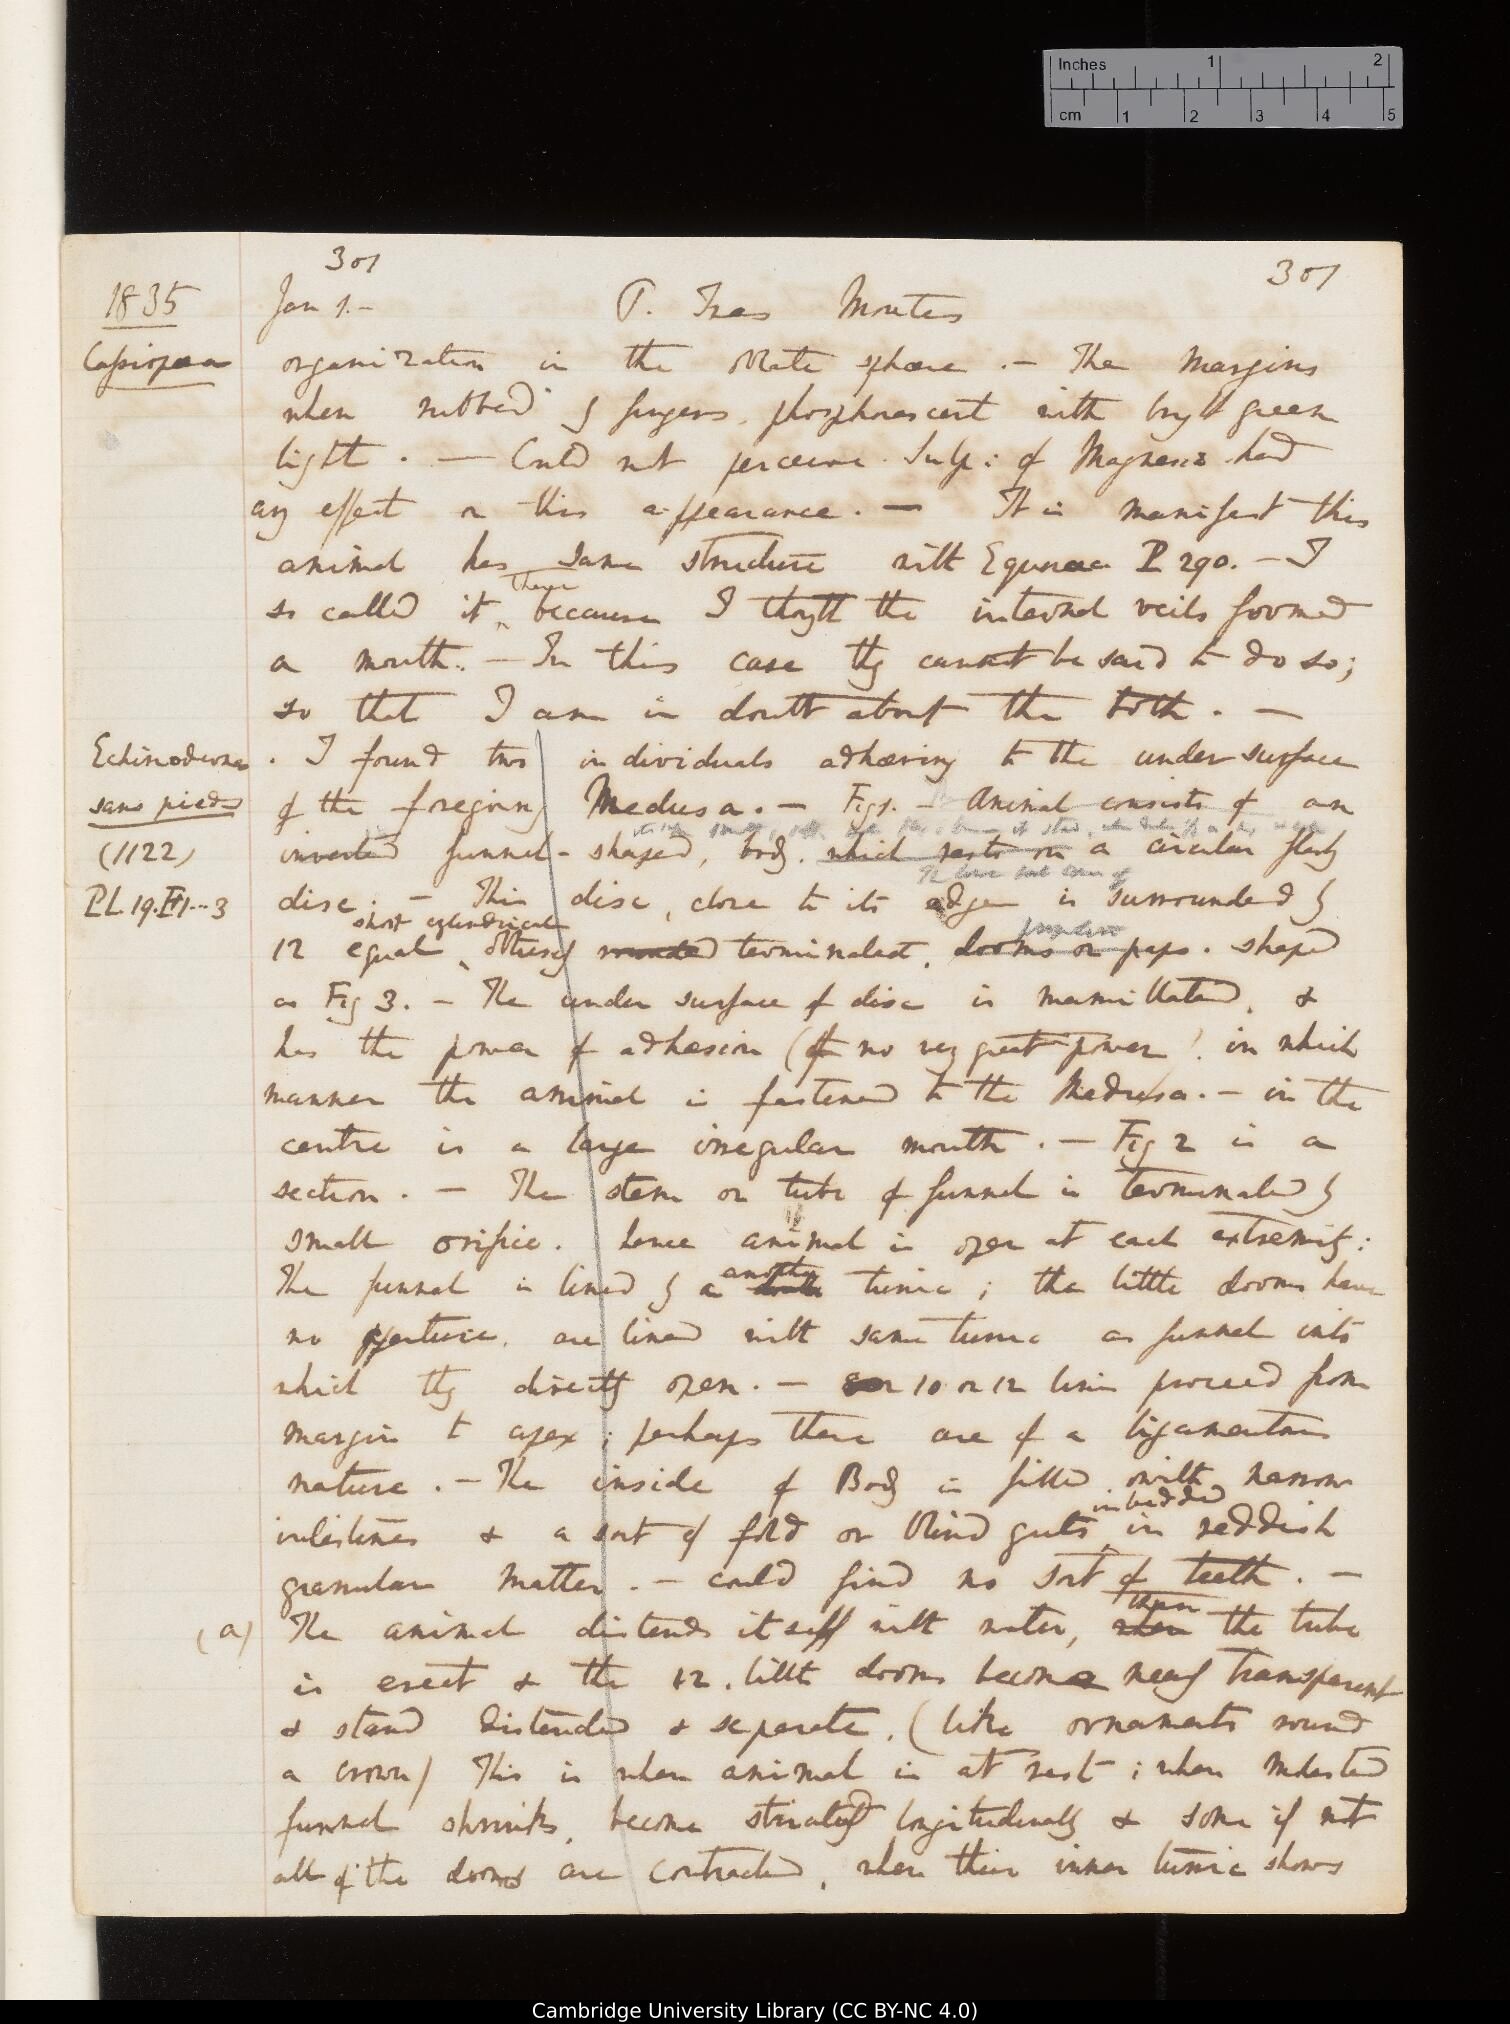 Inches 1 2
cm 1 2 3 4 5
301
301
1835
Jan 1.-
P. Tres Montes
Cassiopaea
organization in the oblate sphære .— The margins
when rubbed by fingers, phosphorescent with bright green
light . — Could not perceive Sulp: of Magnesia had
any effect on this appearance. — It is manifest this
animal has same structure with Equorea P 290. — I
there
so called it ^ because I thought the internal veils formed
a mouth. — In this case they cannot be said to do so;
so that I am in doubt about the both . —
Echinoderma
. I found two individuals adhæring to the under surface
sans pieds
of the foregoing Medusa. — Fig 1. — Animal consists of an
(1122)
inverted funnel-shaped, body. which rests on a circular fleshy
The lower part
Pl. 19. F 1..3
disc. — This disc, close to its edge is surrounded by
short cylindrical
12 equal ^ obtusely rounded terminated, dooms or paps. shaped
as Fig 3. — The under surface of disc is mamillated, &
has the power of adhæsion (of no very great power) in which
manner the animal is fastened to the Medusa. — in the
centre is a large irregular mouth. — Fig 2 is a
section. — The stem or tube of funnel is terminated by
small orifice. hence animal is open at each extremity:
another
The funnel is lined by a tunic; the little dooms have
no aperture, are lined with same tunic as funnel into
which they directly open. — 10 or 12 lines proceed from
margin to apex; perhaps these are of a ligamentous
nature. — The inside of Body is filled with narrow
imbedded
intestines & a sort of fold or blind guts in reddish
granular matter. — could find no sort of teeth. —
then
(a)
The animal distends itself with water, when the tube
is erect & the 12. little dooms become nearly transparent
& stand distended & separate. (like ornaments round
a crown) This is when animal is at rest; when molested
funnel shrinks, become striated longitudinally & some if not
all of the dooms are contracted, when their inner tunic shows
Cambridge University Library (CC BY-NC 4.0)